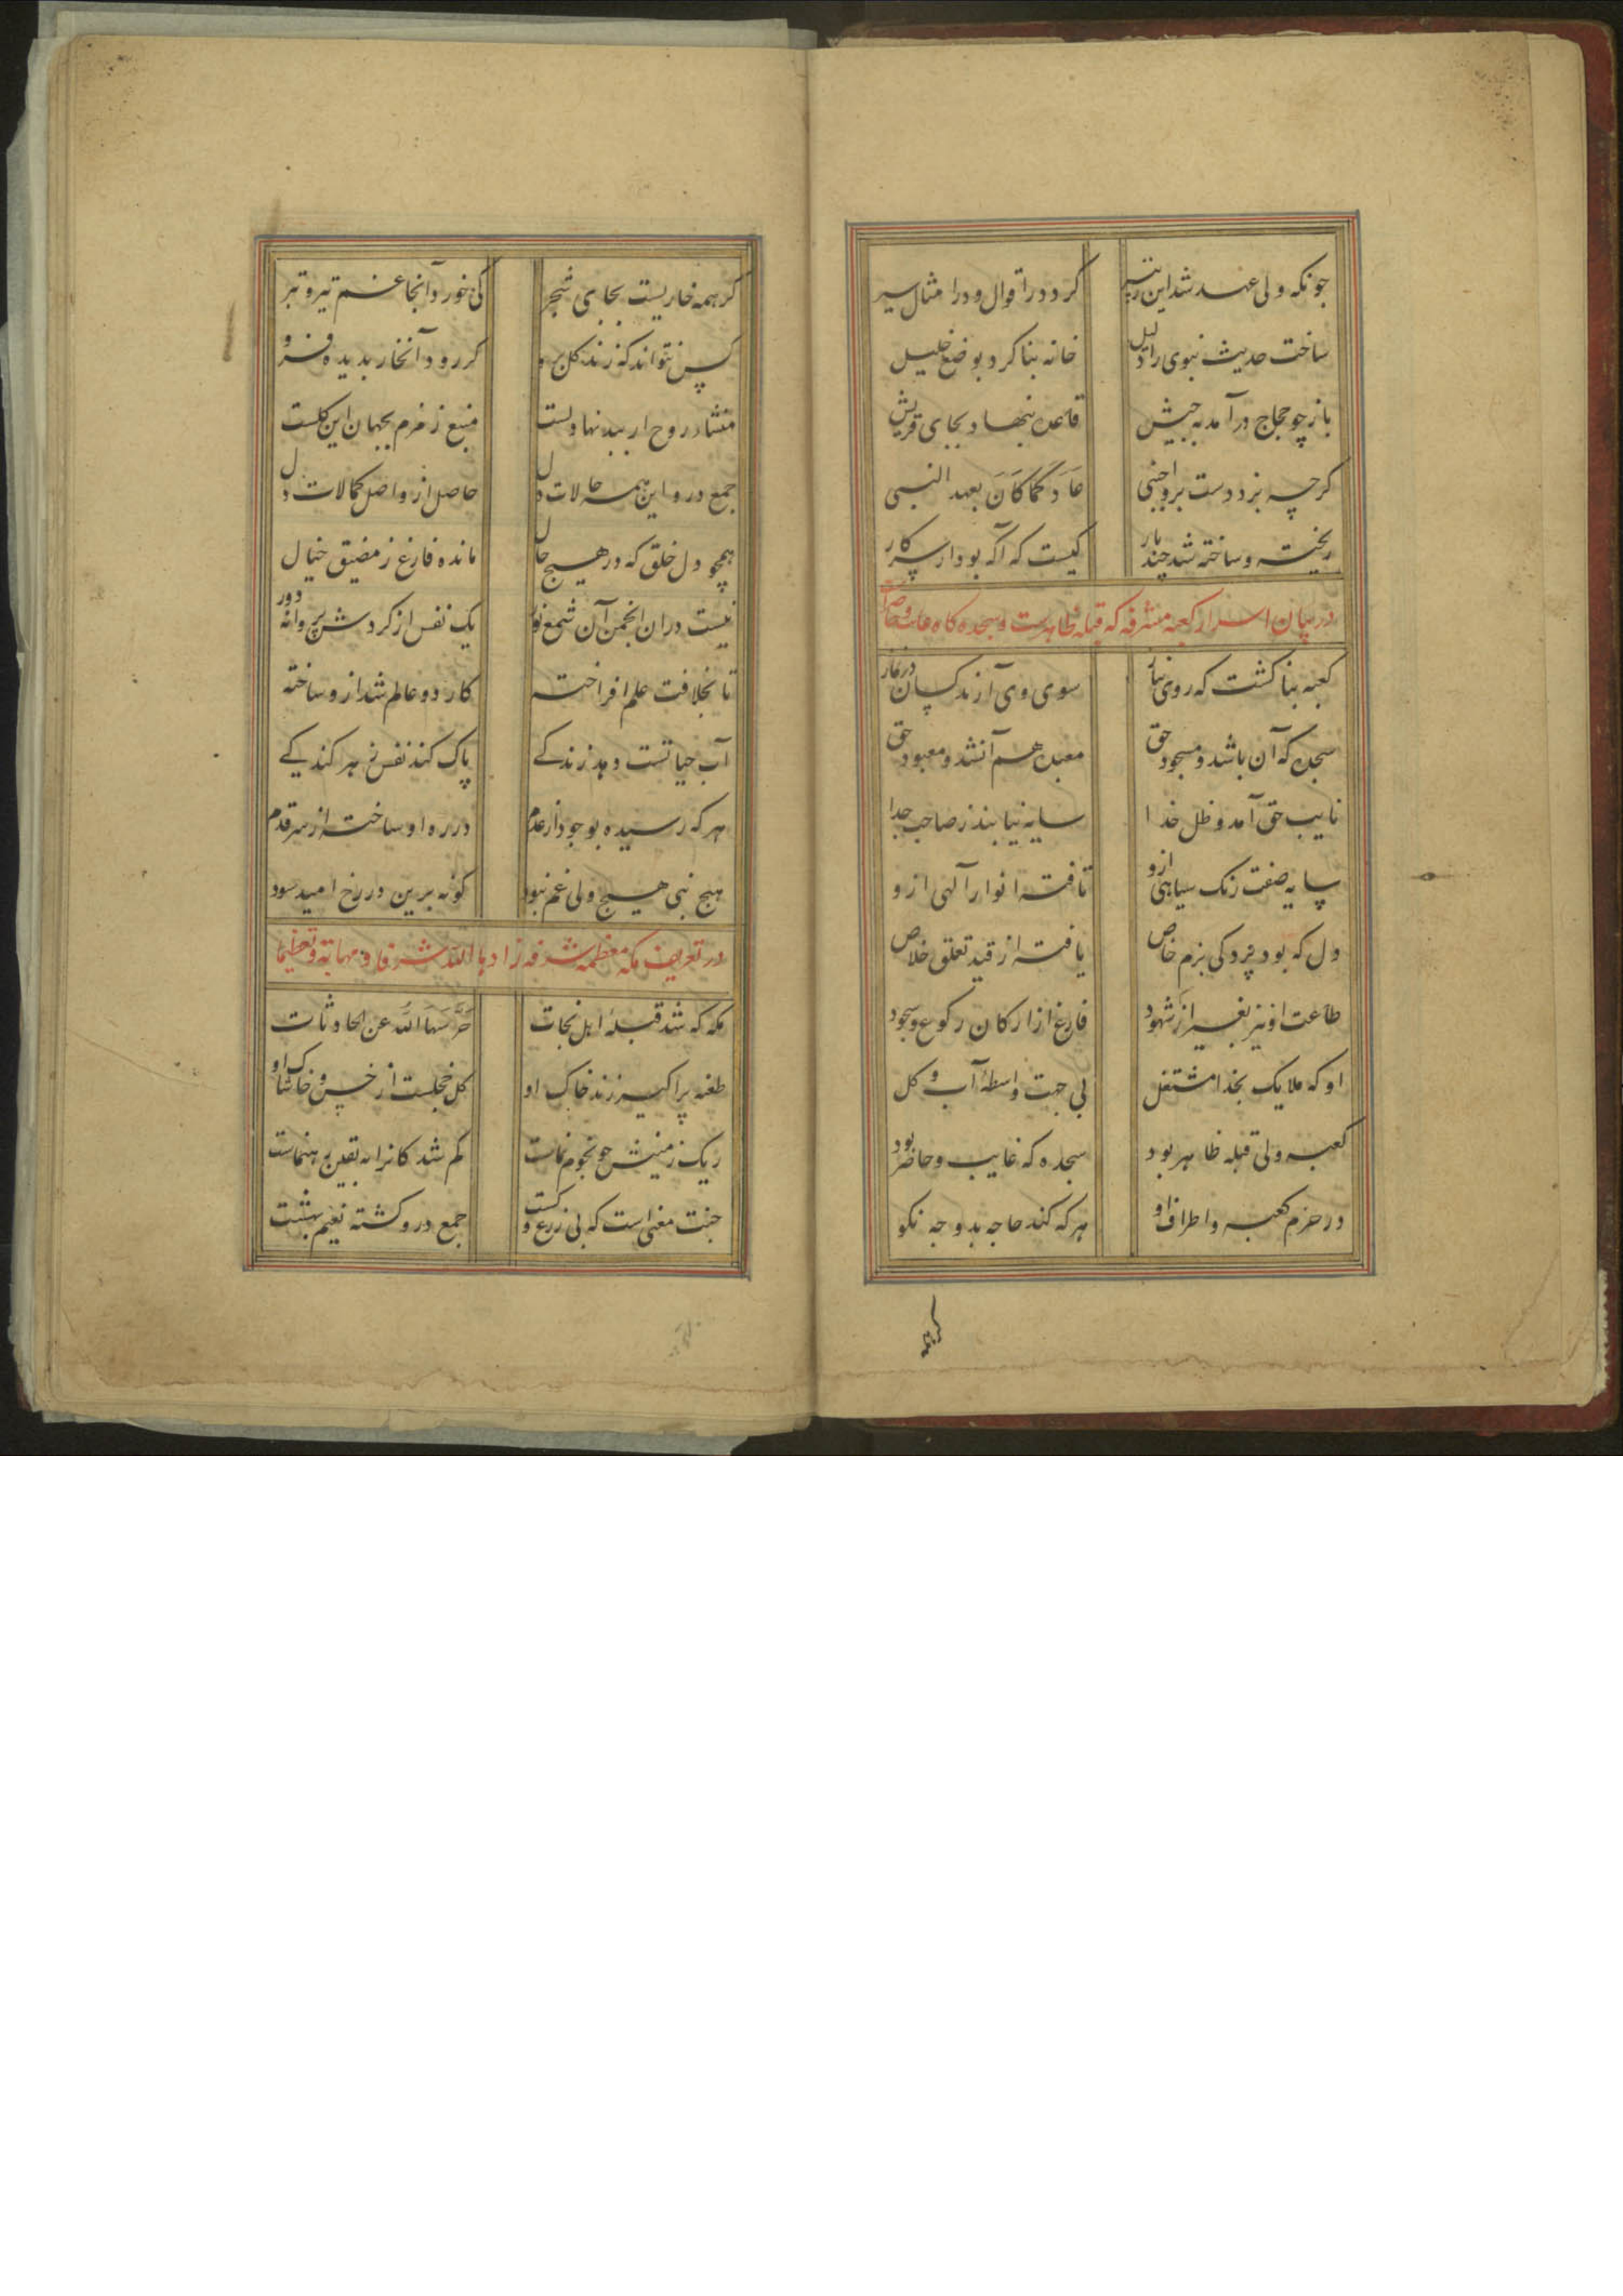 جونکه ولی عهد شد این زبیر کرد در اقوال و در امثال سیر
ساخت حدیث نبوی را دلیل خانه بنا کرد بوضع خلیل
باز چو حجاج در آمد به جیش قاعده بنهاد بجای قریش
کرچه بزد دست برو اجنبی عَادَ کَمَا کَانَ بعهد النبی
ریخته و ساخته شد چند بار کیست که آکه بود از سر کار
در بیان اسرار کعبه مشرفه که قبله ظاهرست و سجده کاه
کعبه بنا کشت که روی نیاز سوی وی آرند کسان در نماز
سجده که آن باشد و مسجود حق معبد هم آنشد و معبود حق
نایب حق آمد و ظل خدا سایه نیابند ز صاحب جدا
سایه صفت رنک سیاهی ازو تافته انوار آلهی ازو
دل که بود پردکی بزم خاص یافته از قید تعلق خلاص
طاعت او نیز بغیر از شهود فارغ از ارکان رکوع و سجود
او که ملایک بخدا مشتغل بی جهت واسطهٔ آب و کل
کعبه ولی قبله ظاهر بود سجده که غایب و حاضر بود
در حرم کعبه و اطراف او هر که کند حاجه بدو جه نکو
کر همه خاریست بجای شجر کی خورد آنجا غم تیر و تبر
کس نتواند که زند کل برو کر رود آنخار بدیده فرو
منشاء روح ار ببدنها دلست منبع زمزم بجهان این کلست
جمع درو این همه حالات دل حاصل ازو اصل کمالات دل
همچو دل خلق که در هیچ حال مانده فارغ ز مضیق خیال
نیست دران انجمن آن شمع نور یک نفس از کردش پروانه دور
تا بخلافت علم افراخته کار دو عالم شد ازو ساخته
آب حیاتست دهد زندکی پاک کند نفس ز هر کندیکے
هر که رسیده بوجود از عدم در ره او ساخته از سر قدم
هیج نبی هیج ولی غم نبود کونه برین در رخ امید سود
در تعریف مکه معظمه شرفه زادها الله شرفا و مهابة و تعظیما
مکه که شد قبلهٔ اهل نجات حَرَّسَهَا اللهُ عن الحادثات
طعنه بر اکسیر زند خاک او کل خجلست از خس و خاشاک او
ریک زمینش جو نجوم سماست کم شد کانرا به یقین رهنماست
جنت معنی است که بی زرع و کشت جمع درو کشته نعیم بهشت
کر همه